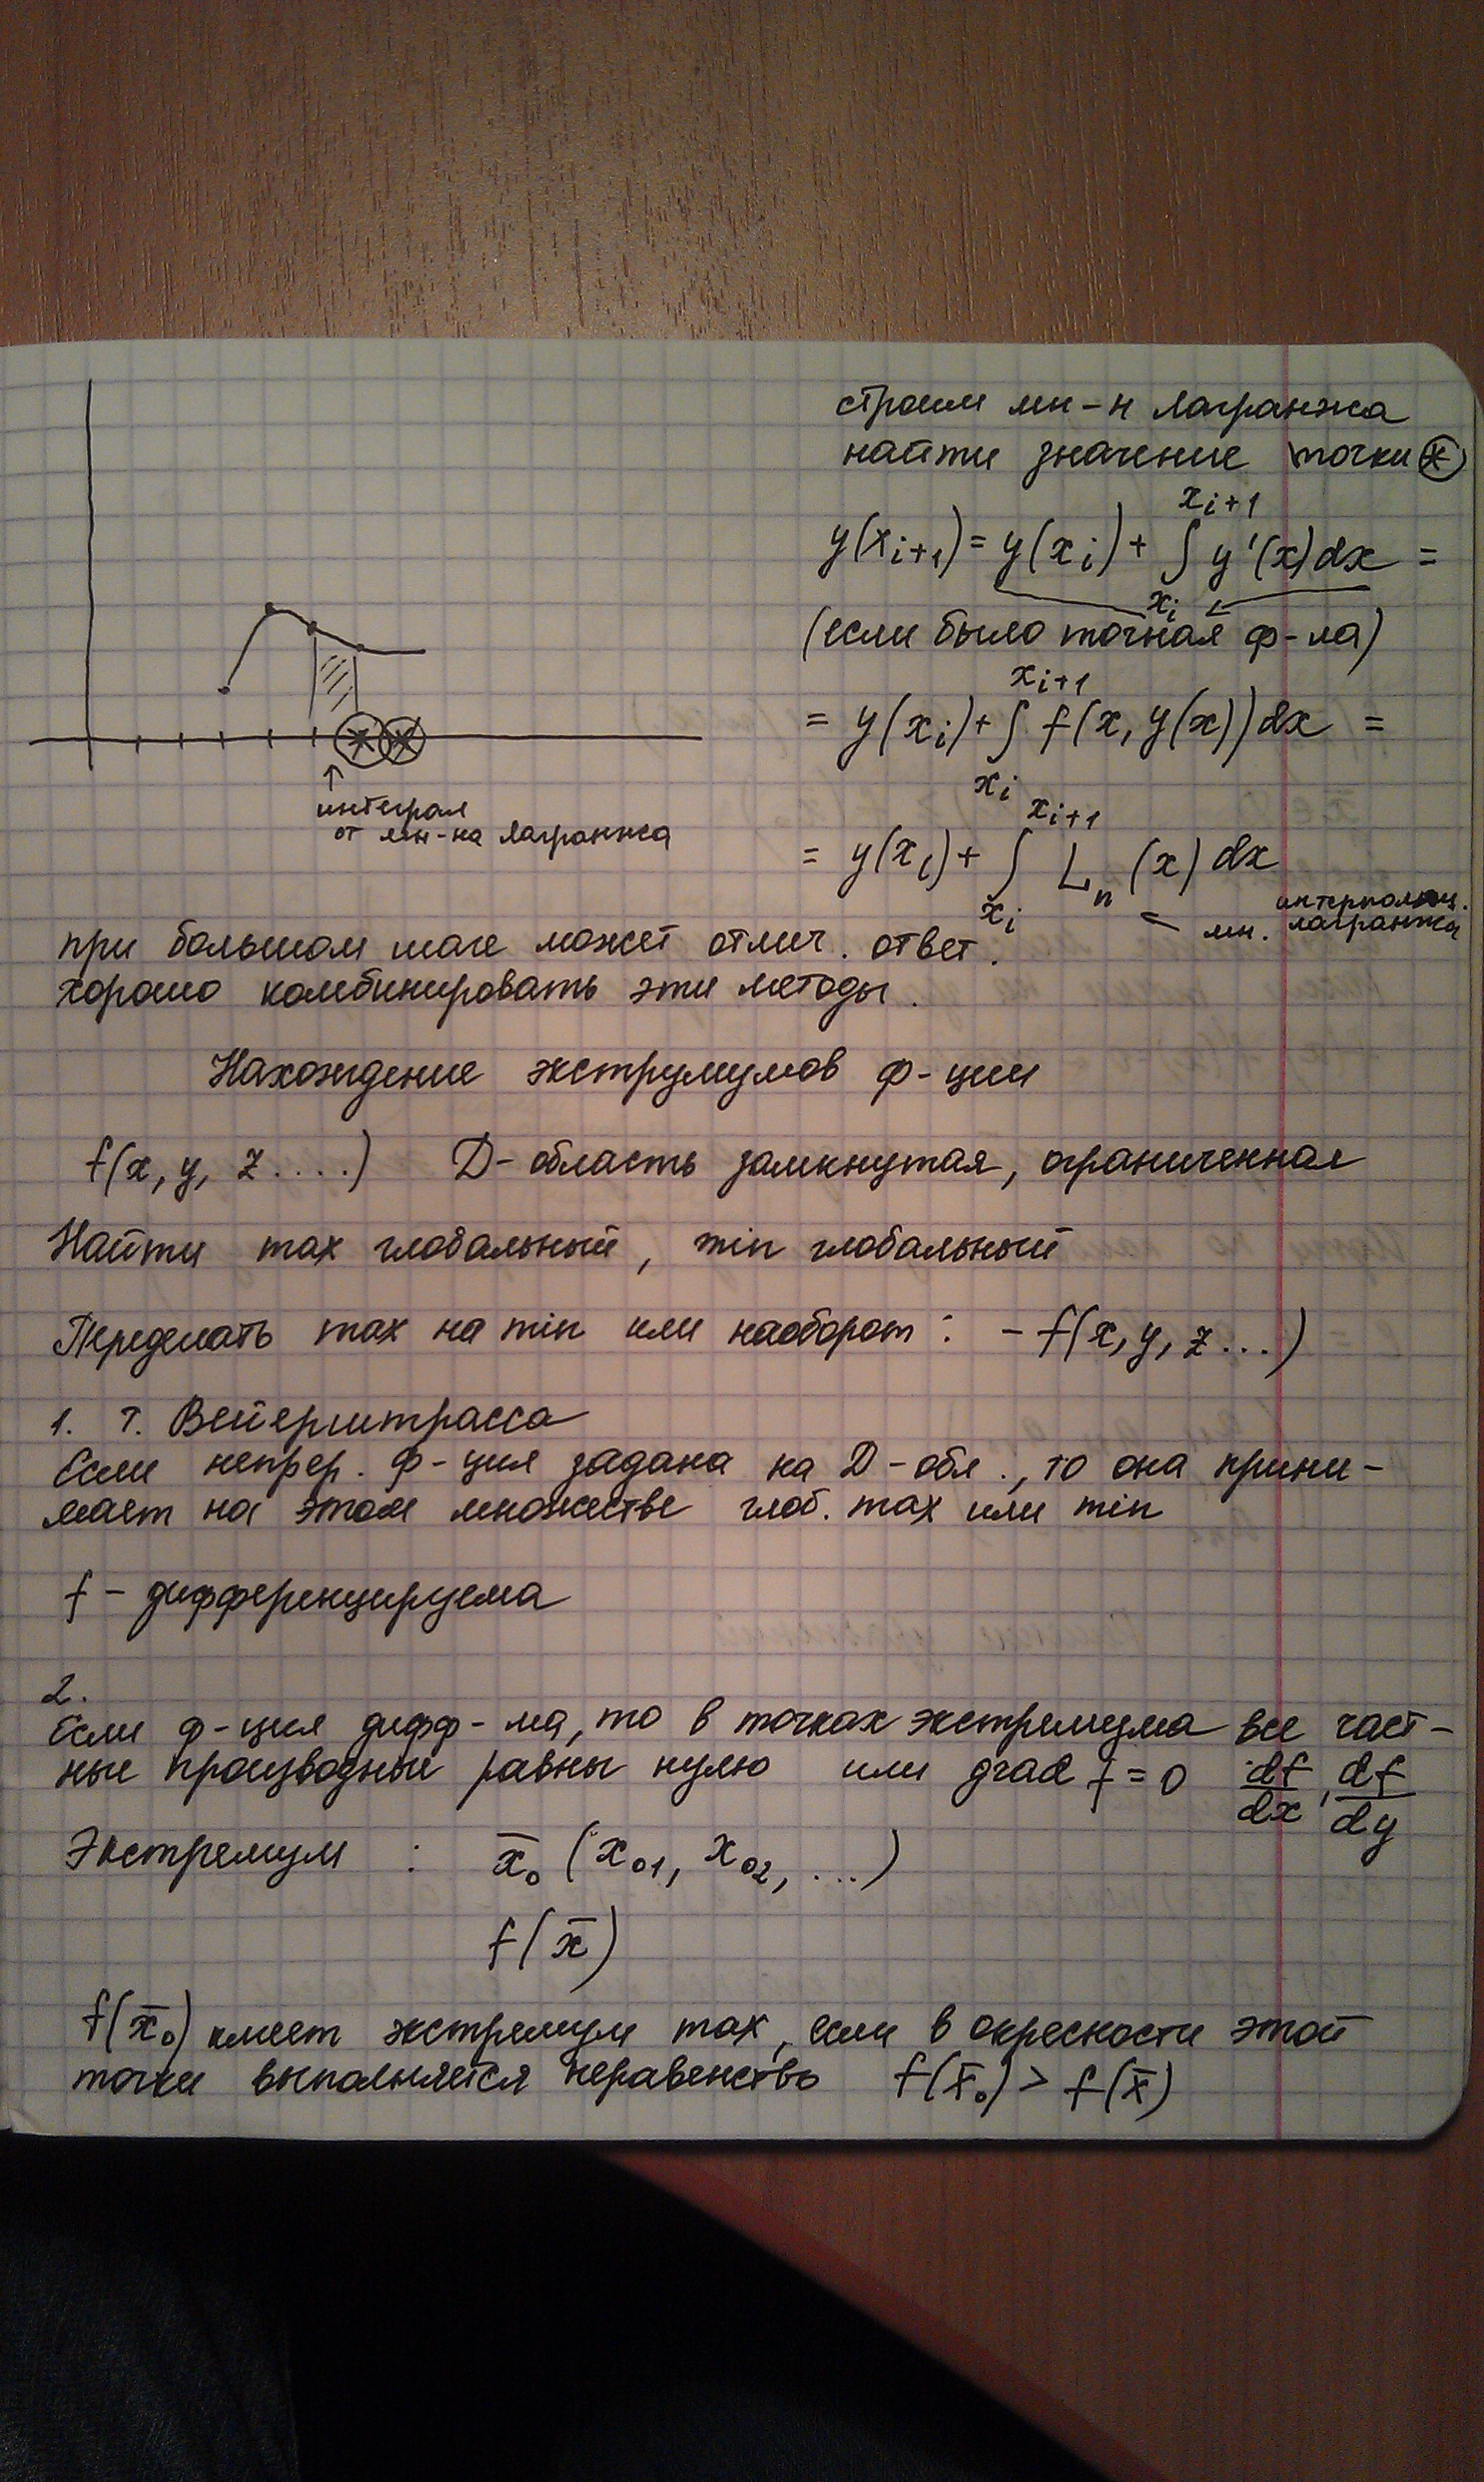 строим мн-н Лагранжа
найти значение точки ⊛
y(x_{i+1}) = y(x_i) + ∫_{x_i}^{x_{i+1}} y'(x)dx =
(если было точная ф-ла)
= y(x_i) + ∫_{x_i}^{x_{i+1}} f(x, y(x))dx =
= y(x_i) + ∫_{x_i}^{x_{i+1}} L_n (x) dx
интерполяц.
← мн. Лагранжа
↑
интеграл
от мн-на Лагранжа
при большом шаге может отлич. ответ.
хорошо комбинировать эти методы.
Нахождение экструмумов ф-ции
f(x, y, z ....) D-область замкнутая, ограниченная
Найти max глобальный, min глобальный
Переделать max на min или наоборот: - f(x, y, z ...)
1. Т. Вейерштрасса
Если непрер. ф-ция задана на D-обл., то она прини-
мает на этом множестве глоб. max или min
f - дифференцируема
2.
Если ф-ция дифф-ма, то в точках экстремума все част-
ные производные равны нулю или grad f = 0 df/dx, df/dy
Экстремум : x̄₀ (x₀₁, x₀₂, ...)
f(x̄)
f(x̄₀) имеет экстремум max, если в окресности этой
точки выполняется неравенство f(x̄₀) > f(x̄)